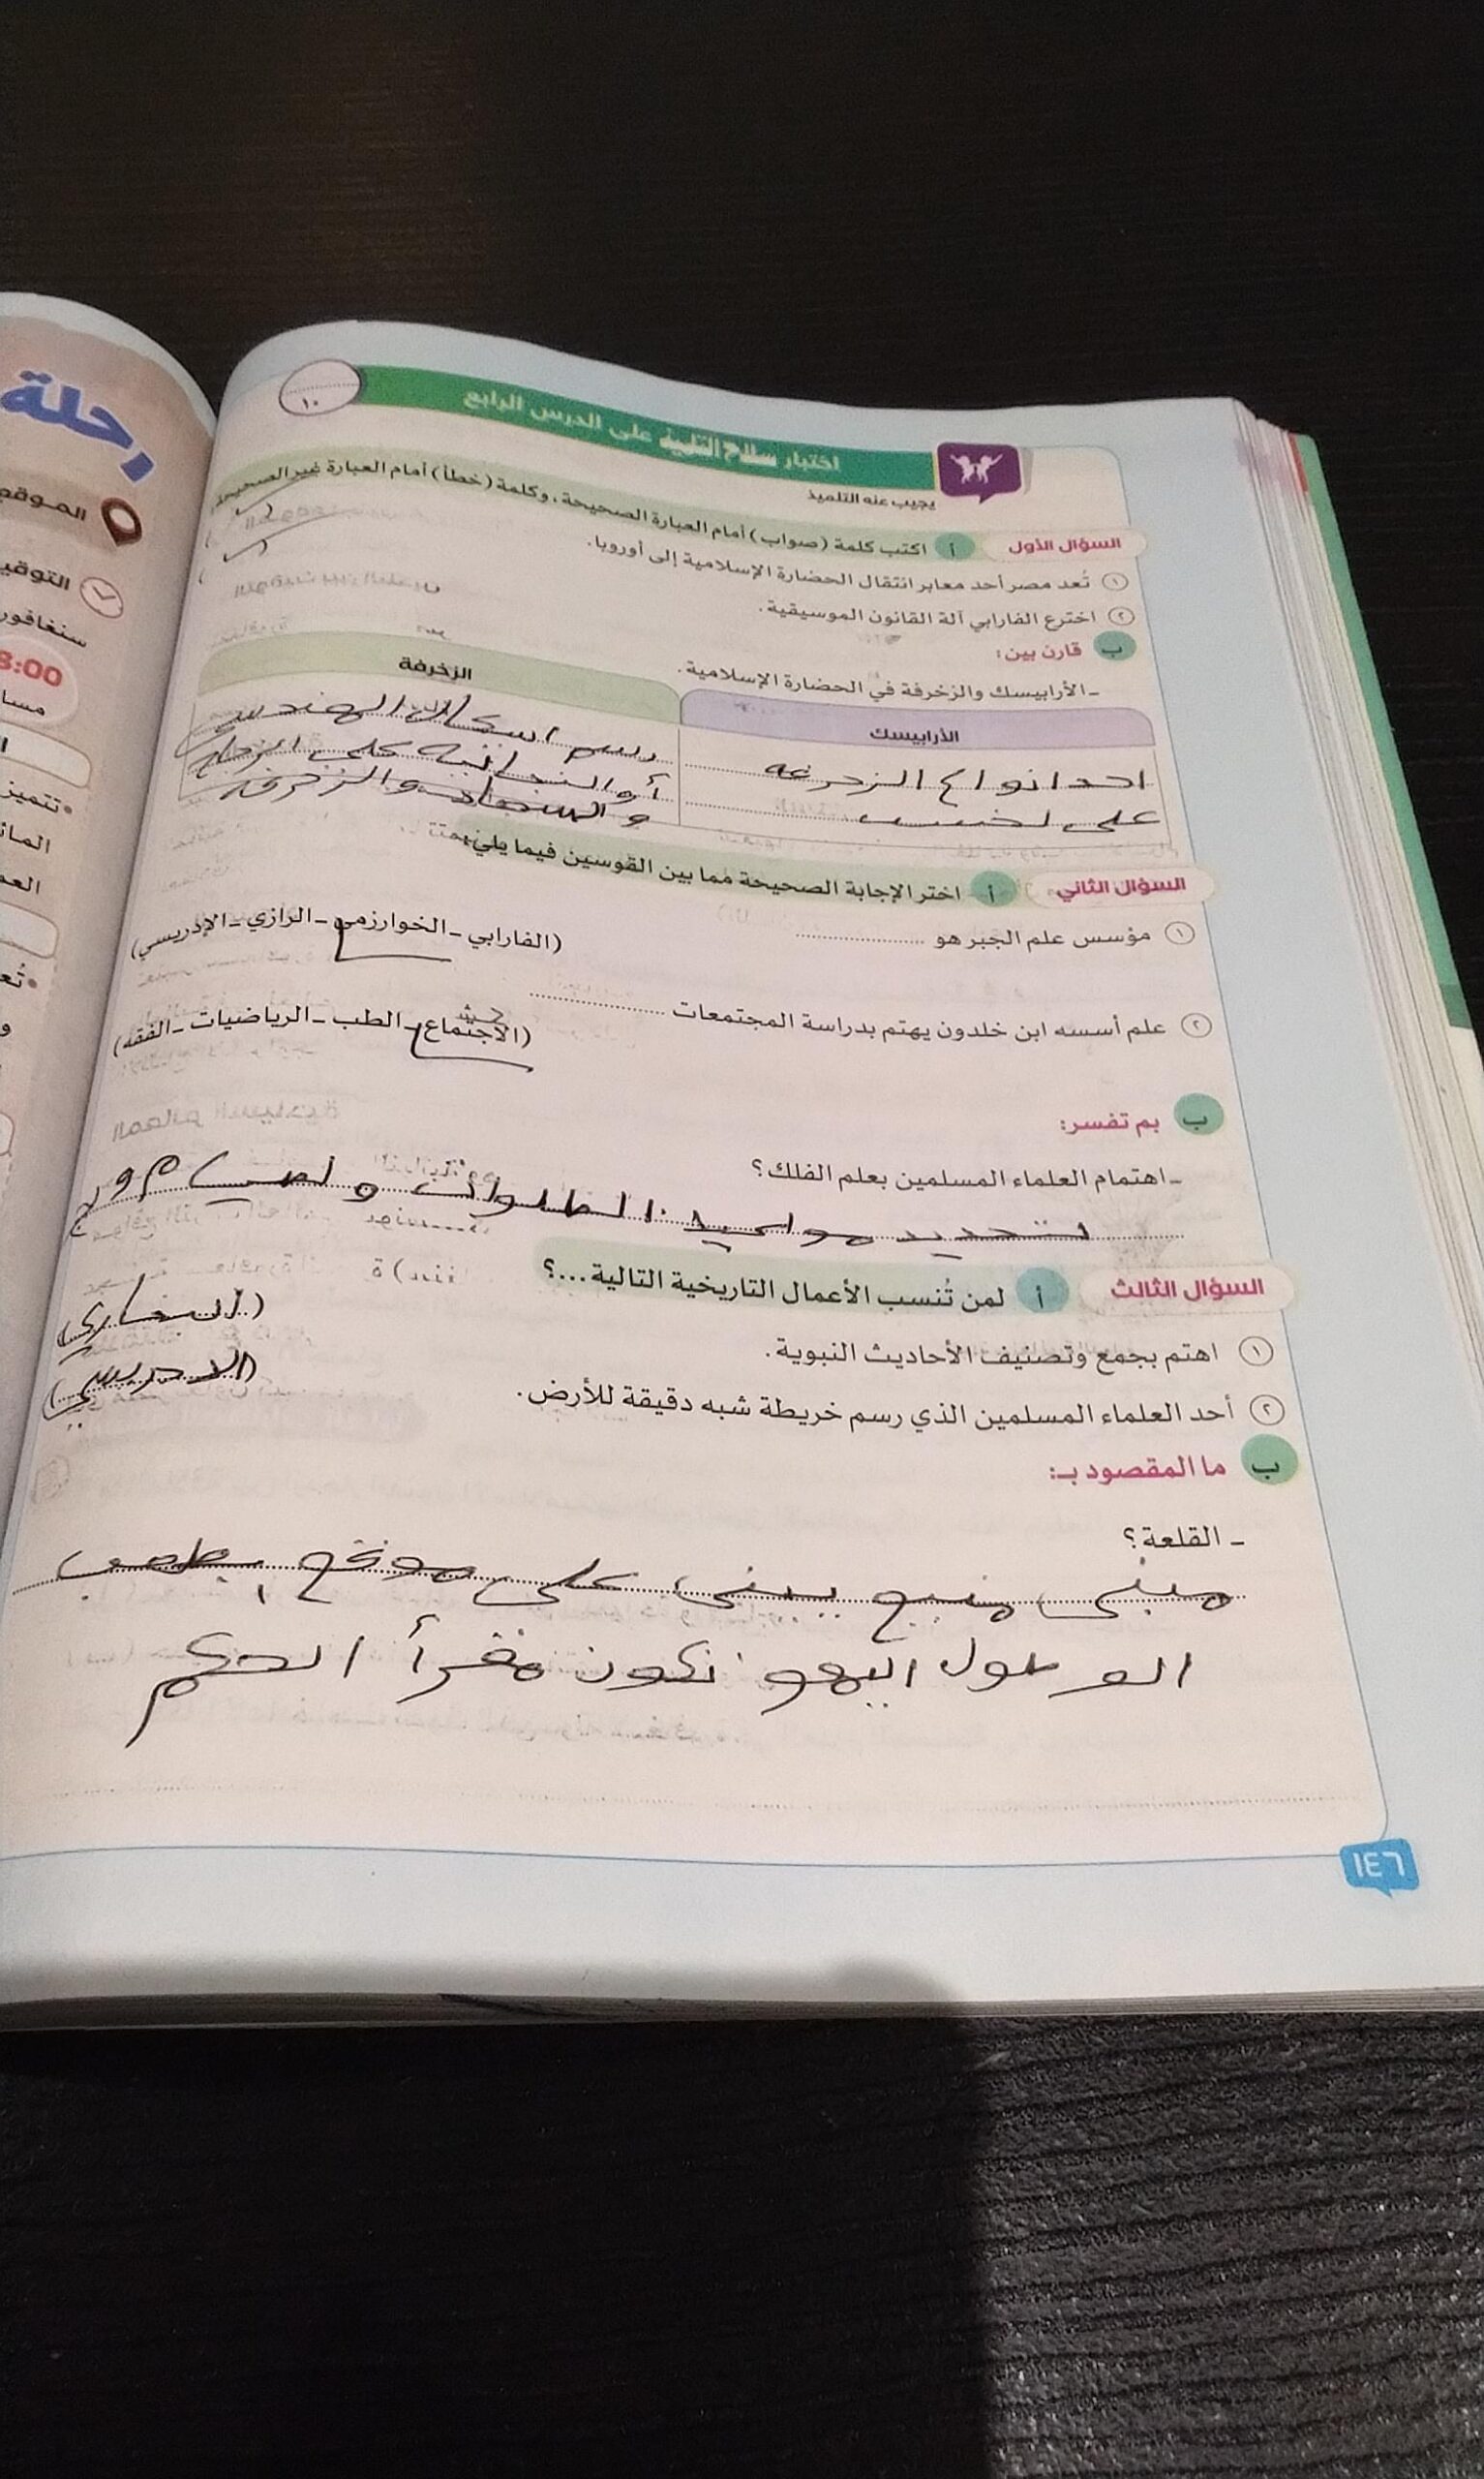 رحلة
الموقع
التوقيت
سنغافورة
8:00
مساء
تتميز
١٠
اختبار سلاح التلميذ على الدرس الرابع
يجيب عنه التلميذ
السؤال الأول أ اكتب كلمة (صواب) أمام العبارة الصحيحة، وكلمة (خطأ) أمام العبارة غير الصحيحة
١ تُعد مصر أحد معابر انتقال الحضارة الإسلامية إلى أوروبا.
٢ اخترع الفارابي آلة القانون الموسيقية.
ب قارن بين:
- الأرابيسك والزخرفة في الحضارة الإسلامية.
الأرابيسك
الزخرفة
احد انواع الزخرفه
على لخشب
رسم اسكال الهندس
أو النباتيه على الزجاج
و السجاد والزخرفه
السؤال الثاني أ اختر الإجابة الصحيحة مما بين القوسين فيما يلي:
١ مؤسس علم الجبر هو .................... (الفارابي - الخوارزمي - الرازي - الإدريسي)
٢ علم أسسه ابن خلدون يهتم بدراسة المجتمعات .................... (الاجتماع - الطب - الرياضيات - الفقه)
ب بم تفسر:
- اهتمام العلماء المسلمين بعلم الفلك؟
لتحديد مواعيد الصلوات و لصيام
السؤال الثالث أ لمن تُنسب الأعمال التاريخية التالية...؟
١ اهتم بجمع وتصنيف الأحاديث النبوية. (البخاري)
٢ أحد العلماء المسلمين الذي رسم خريطة شبه دقيقة للأرض. (الادريسي)
ب ما المقصود بـ:
- القلعة؟
مبنى منيع يبنى على موقع يصعب
الوصول اليهو تكون مقرأ الحكم
١٤٦